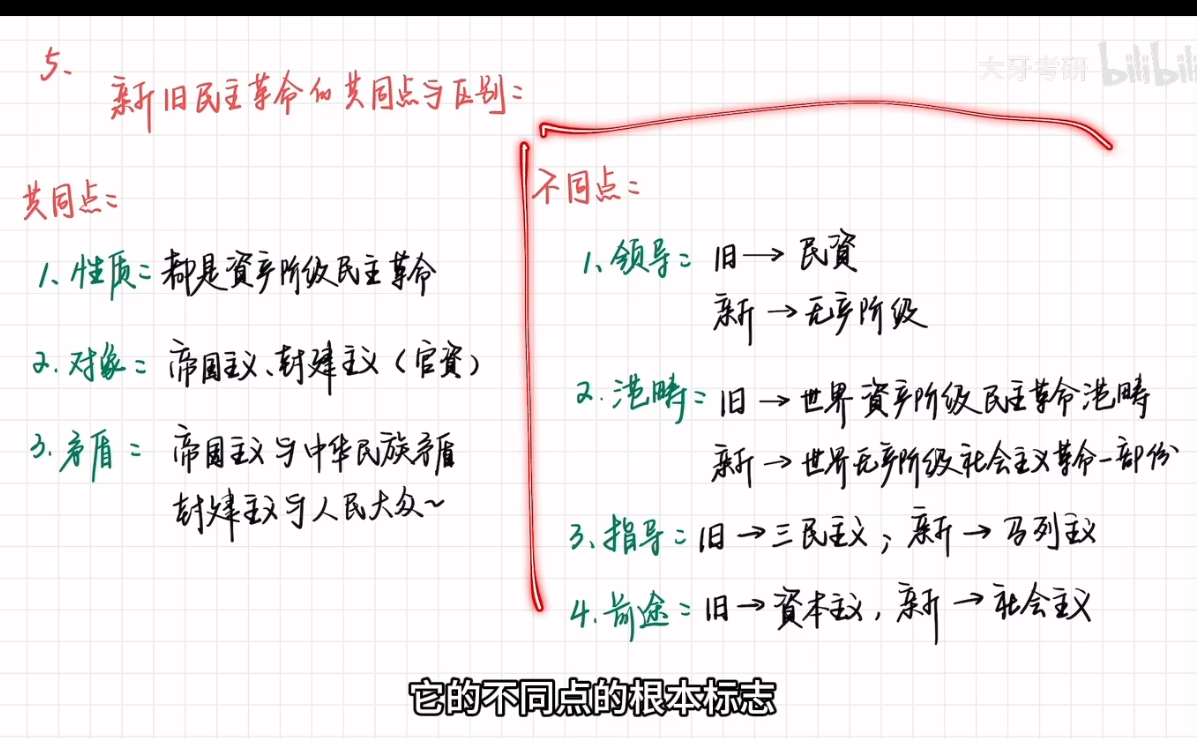 大牙考研 bilibili
5、
新旧民主革命的共同点与区别：
共同点：
1、性质：都是資产阶级民主革命
2.对象：帝国主义、封建主义（官資）
3.矛盾：帝国主义与中华民族矛盾
封建主义与人民大众~
不同点：
1、领导：旧→民資
新→无产阶级
2.范畴：旧→世界資产阶级民主革命范畴
新→世界无产阶级社会主义革命一部份
3、指导：旧→三民主义；新→马列主义
4.前途：旧→資本主义，新→社会主义
它的不同点的根本标志